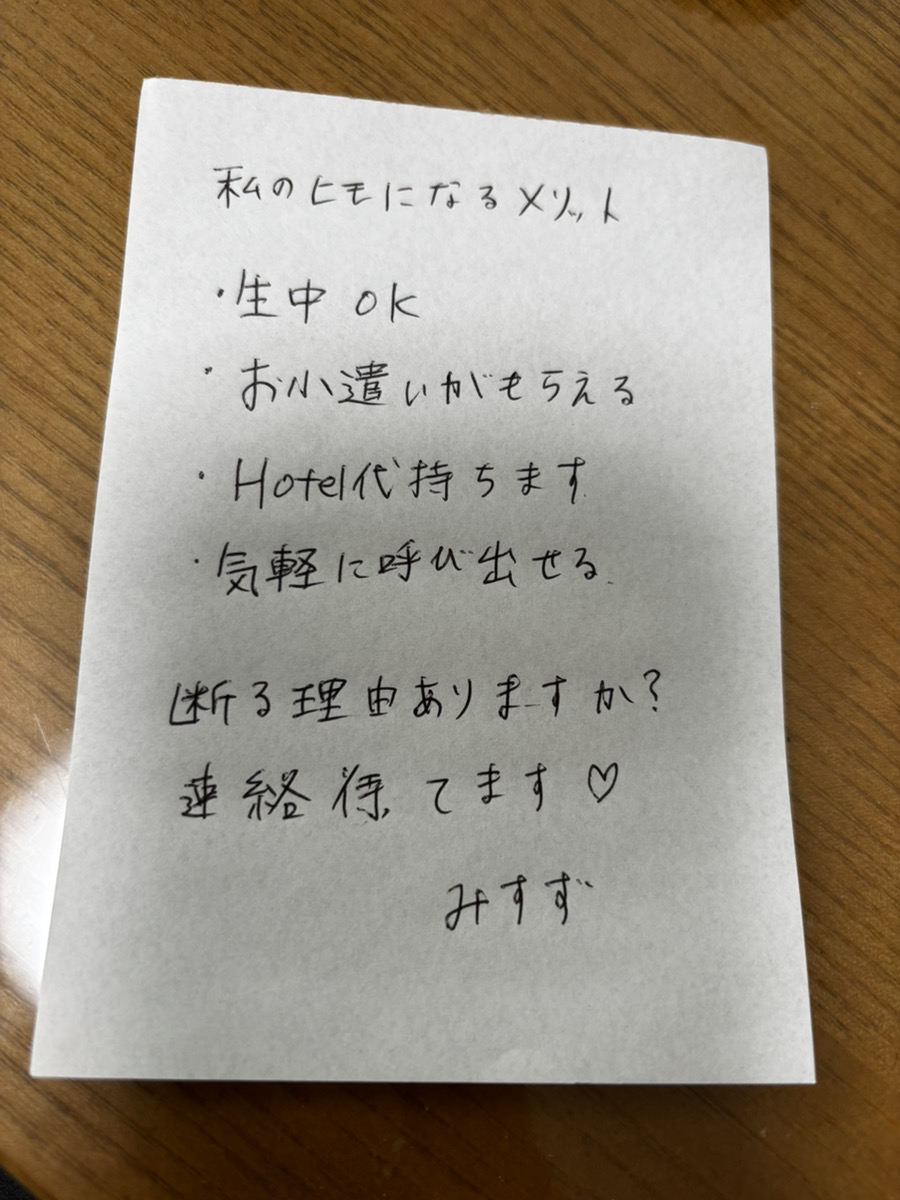 私のヒモになるメリット
・生中 OK
・お小遣いがもらえる
・Hotel代持ちます
・気軽に呼び出せる
断る理由ありますか?
連絡待てます♡
みすず